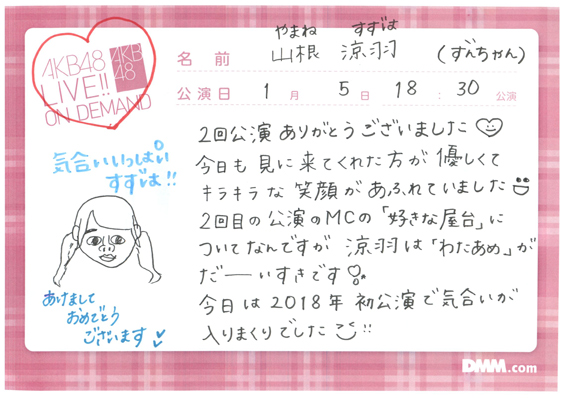 AKB48
LIVE!!
ON DEMAND
AKB
48
やまね すずは
名前 山根 涼羽 (ずんちゃん)
公演日 1月 5日 18:30公演
気合いいっぱい
すずは!!
あけまして
おめでとう
ございます
2回公演ありがとうございました
今日も見に来てくれた方が優しくて
キラキラな笑顔があふれていました
2回目の公演のMCの「好きな屋台」に
ついてなんですが 涼羽は「わたあめ」が
だーーいすきです
今日は2018年初公演で気合いが
入りまくりでした!!
DMM.com